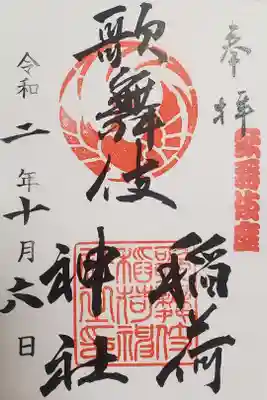 奉拝
歌舞伎座
歌舞伎
稲荷
神社
令和二年十月六日